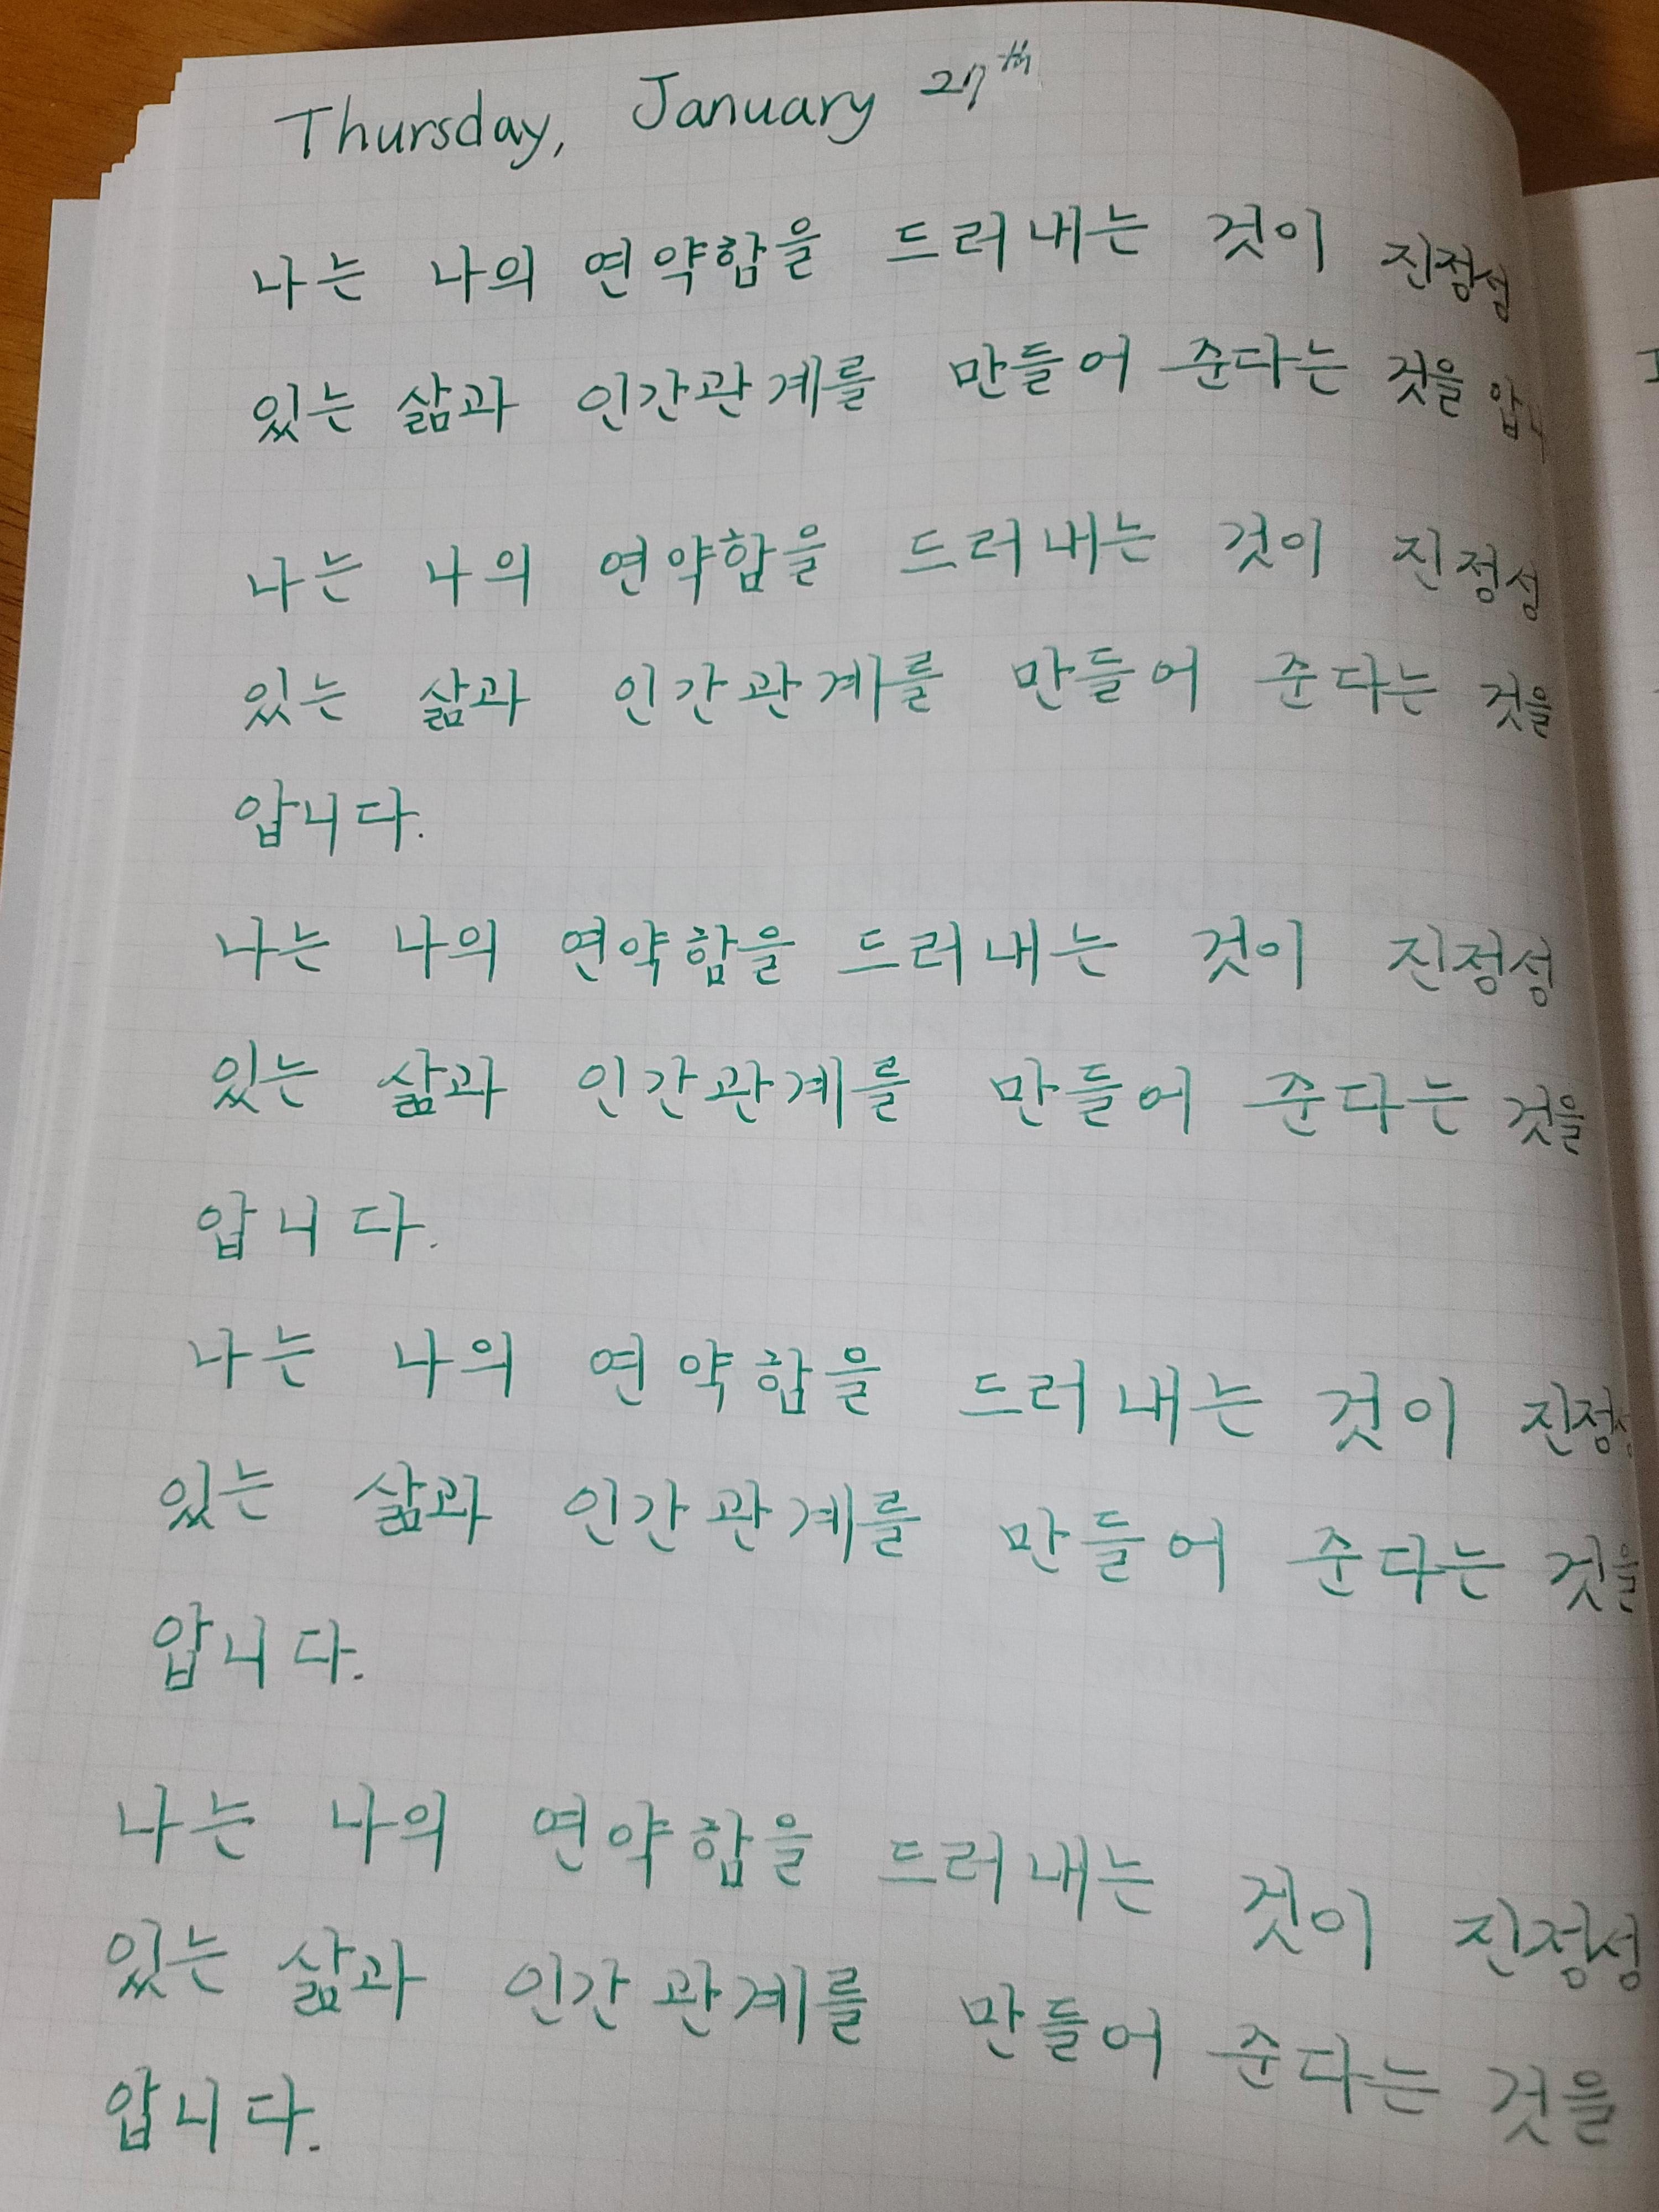 Thursday, January 27th
나는 나의 연약함을 드러내는 것이 진정성
있는 삶과 인간관계를 만들어 준다는 것을
나는 나의 연약함을 드러내는 것이 진정성
있는 삶과 인간관계를 만들어 준다는 것을
압니다.
나는 나의 연약함을 드러내는 것이 진정성
있는 삶과 인간관계를 만들어 준다는 것을
압니다.
나는 나의 연약함을 드러내는 것이
있는 삶과 인간관계를 만들어 준다는 것을
압니다.
나는 나의 연약함을 드러내는 것이 진정성
있는 삶과 인간관계를 만들어 준다는 것을
압니다.